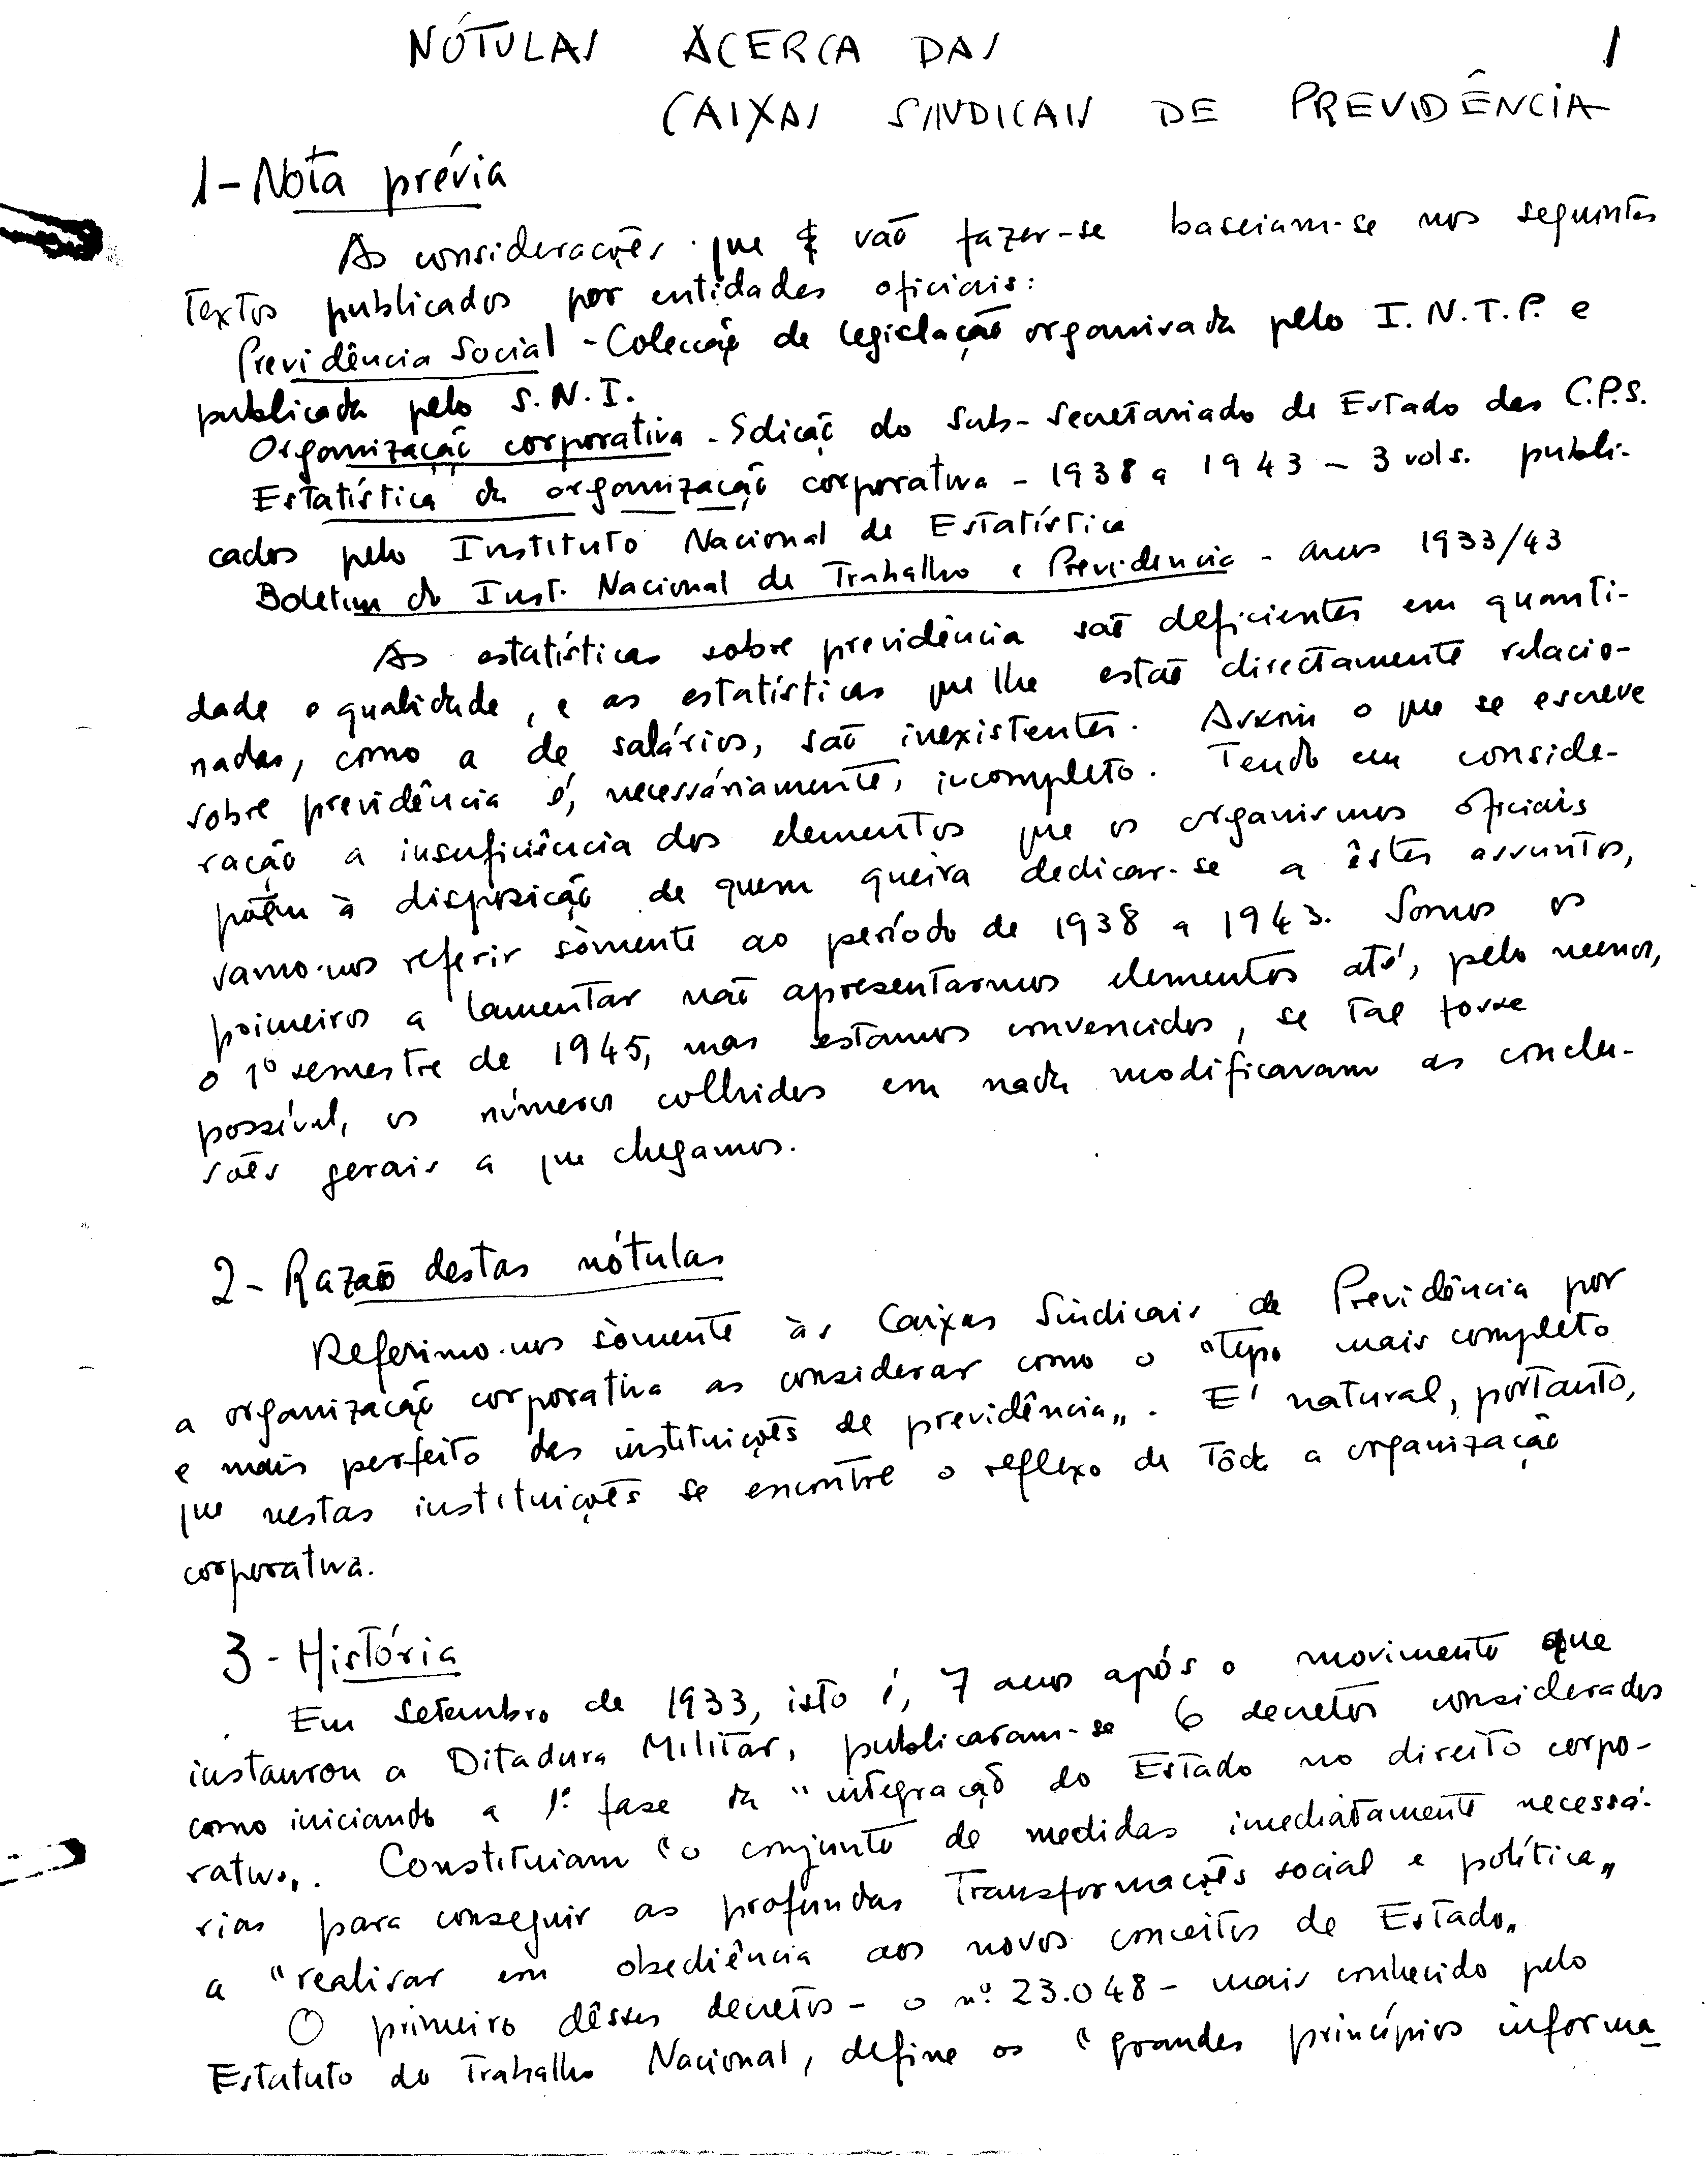 NÓTULAS ACERCA DAS
1
CAIXAS SINDICAIS DE PREVIDÊNCIA
1-Nota prévia
As considerações que vão fazer-se baseiam-se nos seguintes
textos publicados por entidades oficiais:
Previdência Social - Colecção de legislação organisada pelo I.N.T.P. e
publicada pelo S.N.I.
Organização corporativa - Edição do Sub-Secretariado de Estado das C.P.S.
Estatística da organização corporativa - 1938 a 1943 - 3 vols. publi-
cados pelo Instituto Nacional de Estatística
Boletim do Inst. Nacional de Trabalho e Previdencia - anos 1933/43
As estatísticas sobre previdência são deficientes em quanti-
dade e qualidade, e as estatísticas que lhe estão directamente relacio-
nadas, como a de salários, são inexistentes. Assim o que se escreve
sobre previdência é, necessáriamente, incompleto. Tendo em conside-
ração a insuficiência dos elementos que os organismos oficiais
põem à disposição de quem queira dedicar-se a êstes assuntos,
vamo-nos referir sòmente ao período de 1938 a 1943. Somos os
primeiros a lamentar não apresentarmos elementos até, pelo menos,
o 1º semestre de 1945, mas estamos convencidos, se tal fosse
possível, os números colhidos em nada modificavam as conclu-
sões gerais a que chegamos.
2- Razão destas nótulas
Referimo-nos sòmente às Caixas Sindicais de Previdência por
a organização corporativa as considerar como o "tipo mais completo
e mais perfeito das instituições de previdência". E' natural, portanto,
que nestas instituições se encontre o reflexo de tôda a organização
corporativa.
3 - História
Em Setembro de 1933, isto é, 7 anos após o movimento que
instaurou a Ditadura Militar, publicaram-se 6 decretos considerados
como iniciando a 1ª fase da "integração do Estado no direito corpo-
rativo". Constituiam "o conjunto de medidas imediatamente necessá-
rias para conseguir as profundas transformações social e política"
a "realisar em obediência aos novos conceitos de Estado"
O primeiro dêsses decretos - o nº 23.048 - mais conhecido pelo
Estatuto do Trabalho Nacional, define os "grandes princípios informa-